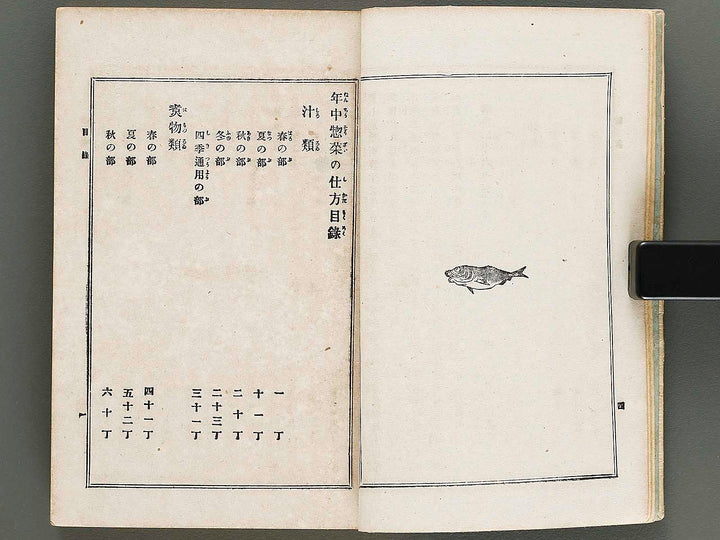 年中惣菜の仕方目錄
汁類
春の部 一丁
夏の部 十一丁
秋の部 二十丁
冬の部 二十三丁
四季通用の部 三十一丁
煑物類
春の部 四十一丁
夏の部 五十二丁
秋の部 六十丁
目錄
一